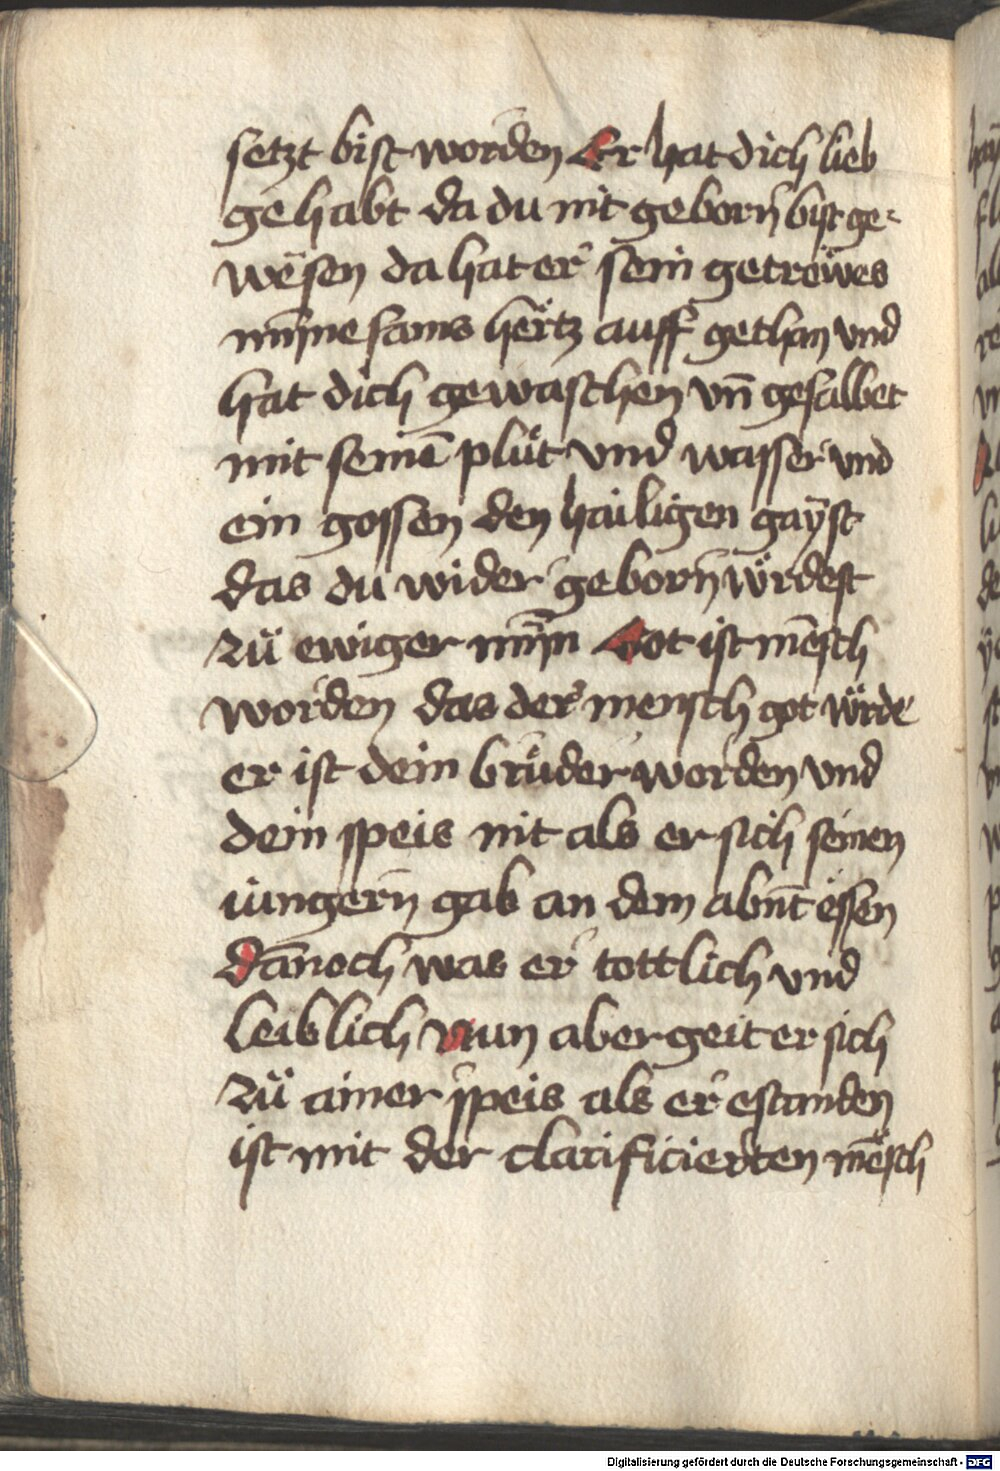 setzt bist worden Er hat dich lieb
gehabt da du nit geborn̄ bist ge-
wësen da hat er sein getrëwes
hërtz auff gethan vnd
hat dich gewaschen vn̄ gesalbet
mit seinē plůt vnd wasser vnd
ein gossen den hailigen gaÿst
das du wider geborn̄ würdest
zů ewiger Got ist mēsch
worden das der mensch got würde
er ist dein brůder worden vnd
dein speis nit als er sich seinen
iüngern̄ gab an dem abñt ëssen
dānoch was er tottlich vnd
leiblich nun aber geit er sich
zů ainer speis als er estanden
ist mit der clarificierten mēsch
Digitalisierung gefördert durch die Deutsche Forschungsgemeinschaft - DFG